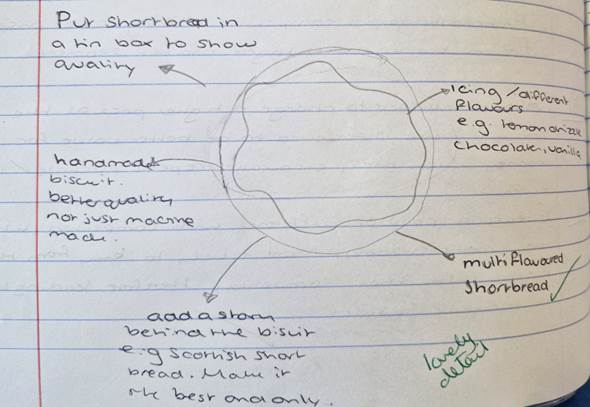 Put shortbread in
a tin box to show
quality
Icing / different
flavours
e.g. lemon drizzle
chocolate, vanilla
handmade
biscuit.
better quality
not just machine
made.
multiflavoured
shortbread
add a story
behind the biscuit
e.g Scottish short
bread. Make it
the best and only.
lovely
detail